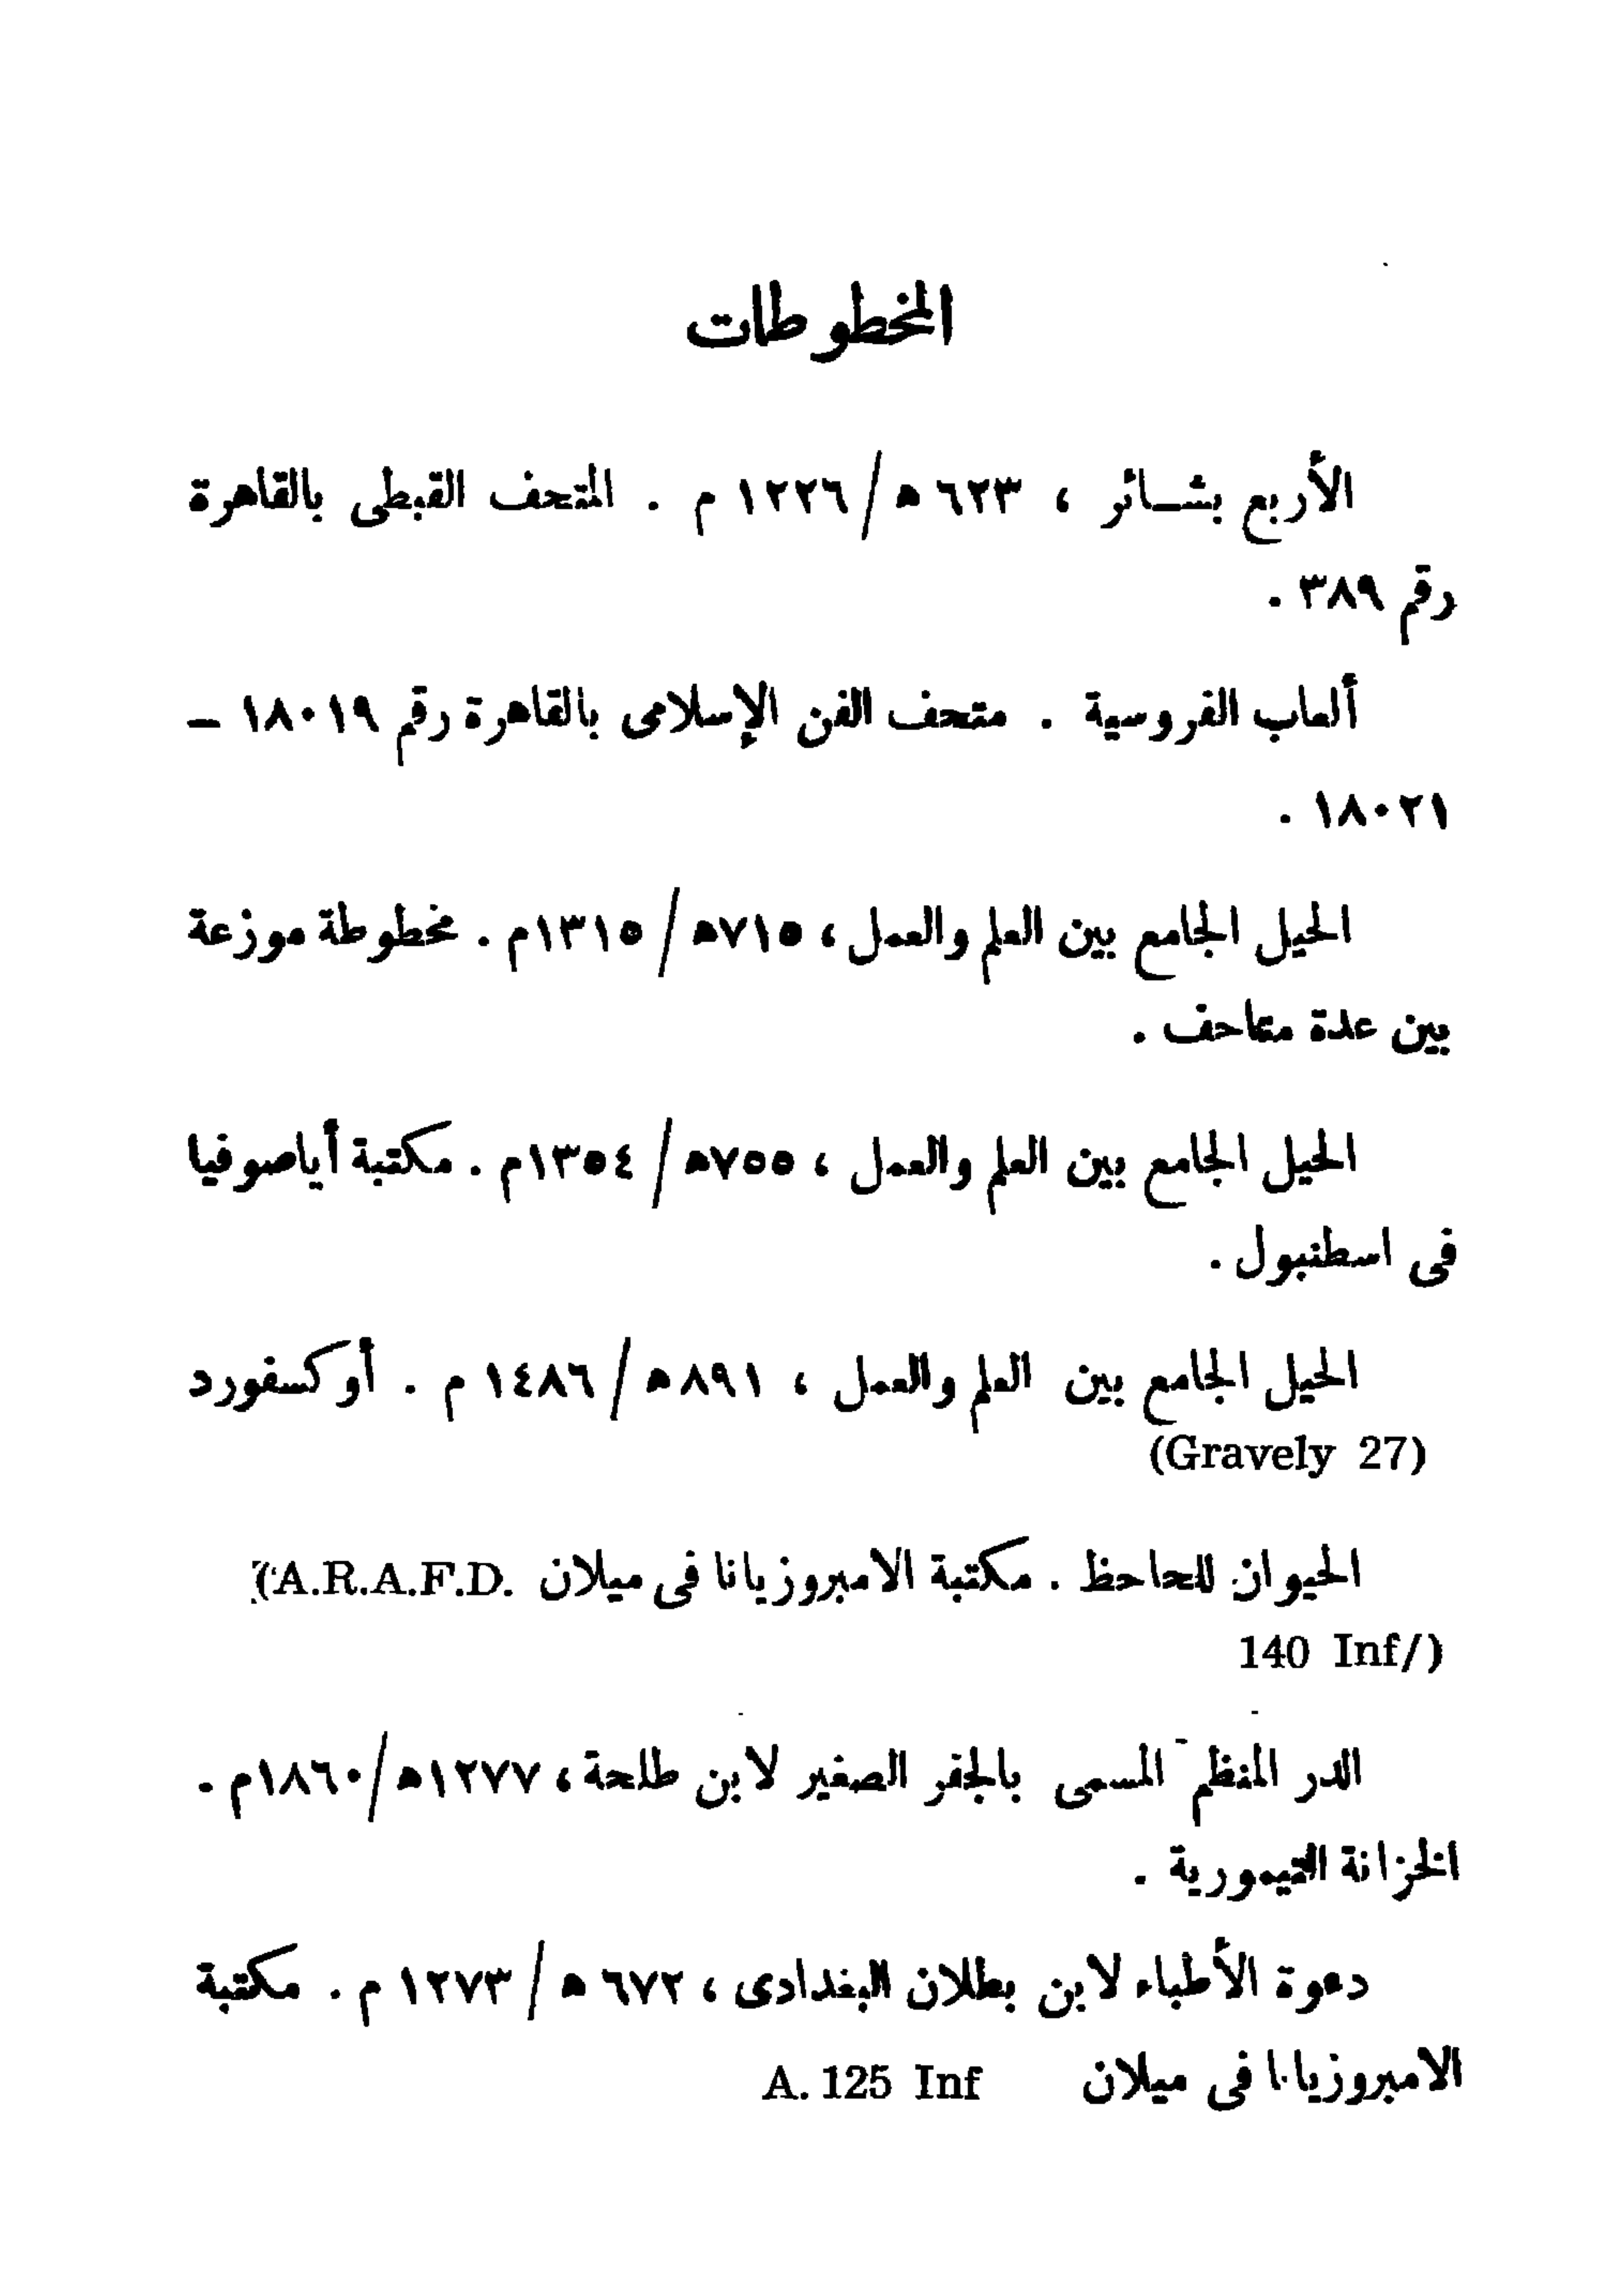 المخطوطات
الأربع بشــائر ، ٦٢٣ ه/ ١٢٢٦ م . المتحف القبطى بالقاهرة
رقم ٣٨٩ .
ألعاب الفروسية . متحف الفن الإسلامى بالقاهرة رقم ١٨٠١٩ –
١٨٠٢١ .
الحيل الجامع بين العلم والعمل ، ٧١٥ه / ١٣١٥م . مخطوطة موزعة
بين عدة متاحف .
الحيل الجامع بين العلم والعمل ، ٧٥٥ه / ١٣٥٤م . مكتبة أياصوفيا
فى اسطنبول .
الحيل الجامع بين العلم والعمل ، ٨٩١ ه/ ١٤٨٦ م . أوكسفورد
(Gravely 27)
الحيوان للجاحظ . مكتبة الامبروزيانا فى ميلان (A.R.A.F.D.
140 Inf/)
الدر المنظم المسمى بالجفر الصغير لابن طلحة ، ١٢٧٧ه/ ١٨٦٠م .
الخزانة التيمورية .
دعوة الأطباء لابن بطلان البغدادى ، ٦٧٢ ه / ١٢٧٣ م . مكتبة
الامبروزيانا فى ميلان A. 125 Inf